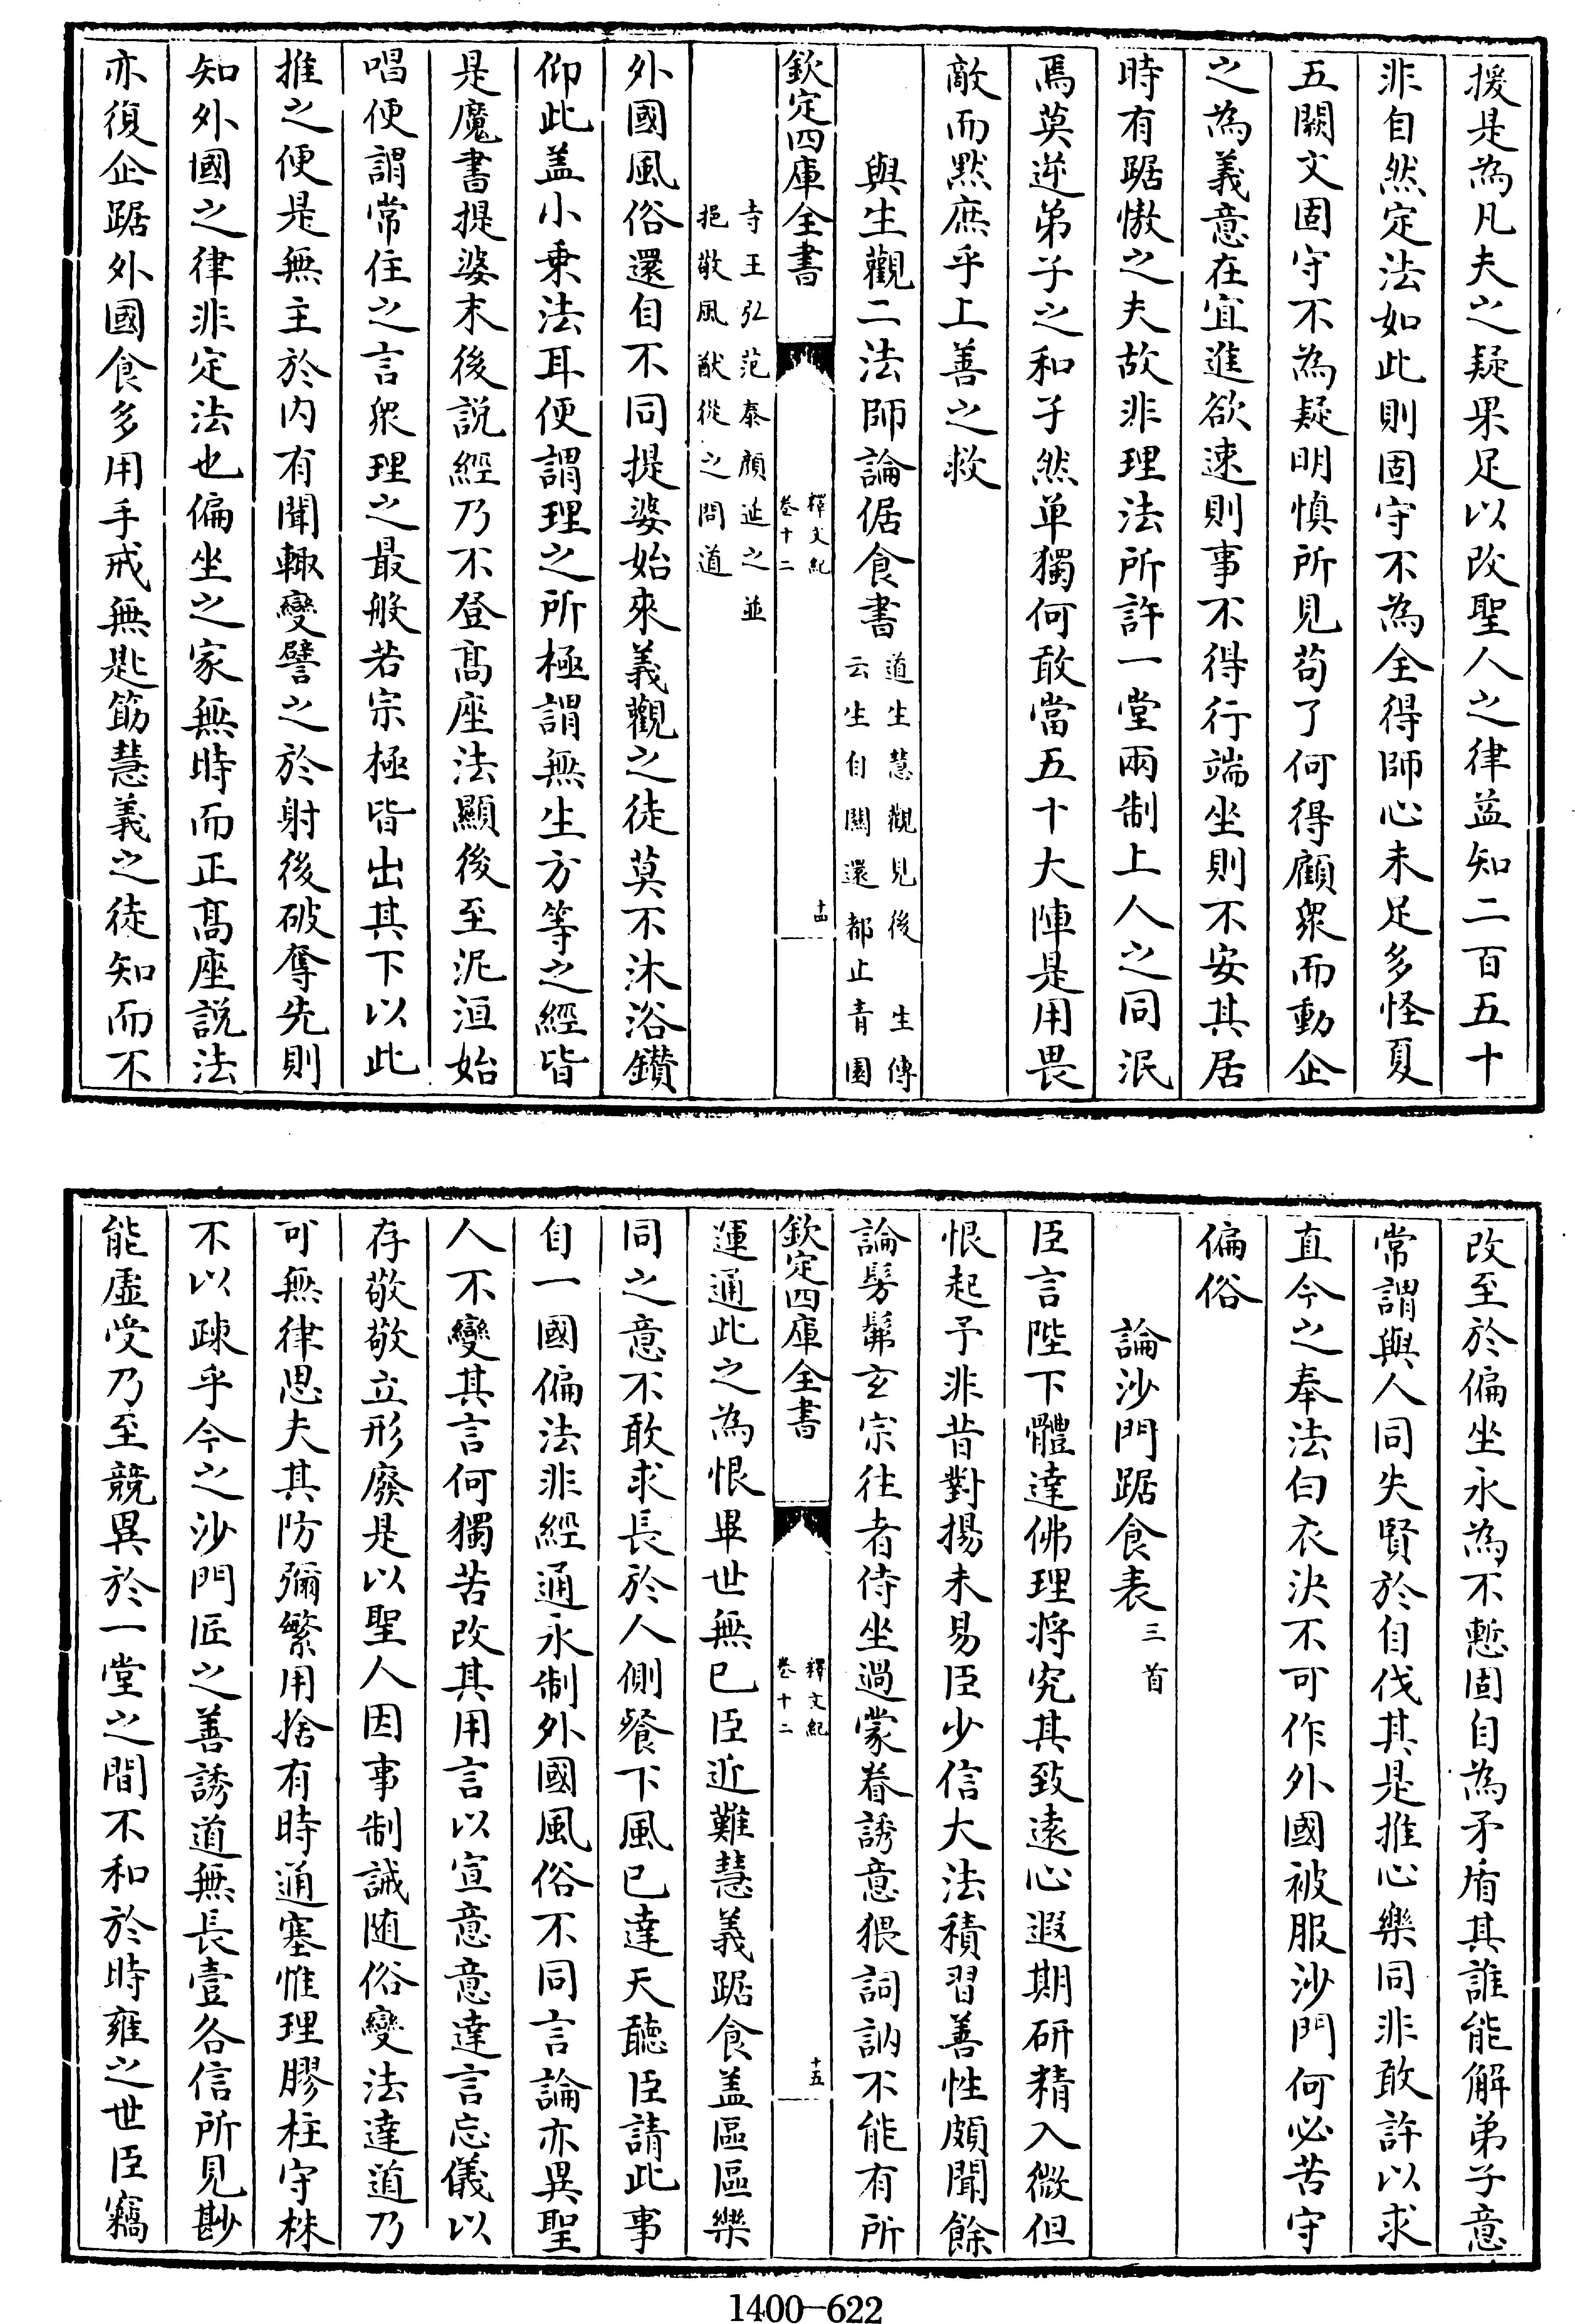 援是為凡夫之疑果足以改聖人之律益知二百五十
非自然定法如此則固守不為全得師心未足多怪夏
五闕文固守不為疑明慎所見苟了何得顧衆而動企
之為義意在宜進欲速則事不得行端坐則不安其居
時有踞慠之夫故非理法所許一堂兩制上人之同泯
焉莫逆弟子之和孑然单獨何敢當五十大陣是用畏
敵而默庶乎上善之救
與生觀二法師論倨食書道生慧觀見後 生傳
云生自關還都止青園
欽定四庫全書
釋文紀
卷十二
十四
寺王弘范泰顔延之並
挹敬風猷從之問道
外國風俗還自不同提婆始來義觀之徒莫不沐浴鑽
仰此盖小乗法耳便謂理之所極謂無生方等之經皆
是魔書提婆末後説經乃不登髙座法顯後至泥洹始
唱便謂常住之言衆理之最般若宗極皆出其下以此
推之便是無主於内有聞輙變譬之於射後破奪先則
知外國之律非定法也偏坐之家無時而正髙座説法
亦復企踞外國食多用手戒無匙筯慧義之徒知而不
改至於偏坐永為不慙固自為矛盾其誰能解弟子意
常謂與人同失賢於自伐其是推心樂同非敢許以求
直今之奉法白衣決不可作外國被服沙門何必苦守
偏俗
論沙門踞食表三首
臣言陛下體達佛理將究其致遠心遐期研精入微但
恨起予非昔對揚未易臣少信大法積習善性頗聞餘
論髣髴玄宗往者侍坐過蒙眷誘意猥詞訥不能有所
欽定四庫全書
釋文紀
卷十二
十五
運通此之為恨畢世無已臣近難慧義踞食盖區區樂
同之意不敢求長於人側餐下風已達天聽臣請此事
自一國偏法非經通永制外國風俗不同言論亦異聖
人不變其言何獨苦改其用言以宣意意達言忘儀以
存敬敬立形廢是以聖人因事制誡随俗變法達道乃
可無律思夫其防彌繁用捨有時通塞惟理膠柱守株
不以疎乎今之沙門匠之善誘道無長壹各信所見尠
能虚受乃至競異於一堂之間不和於時雍之世臣竊
1400-622